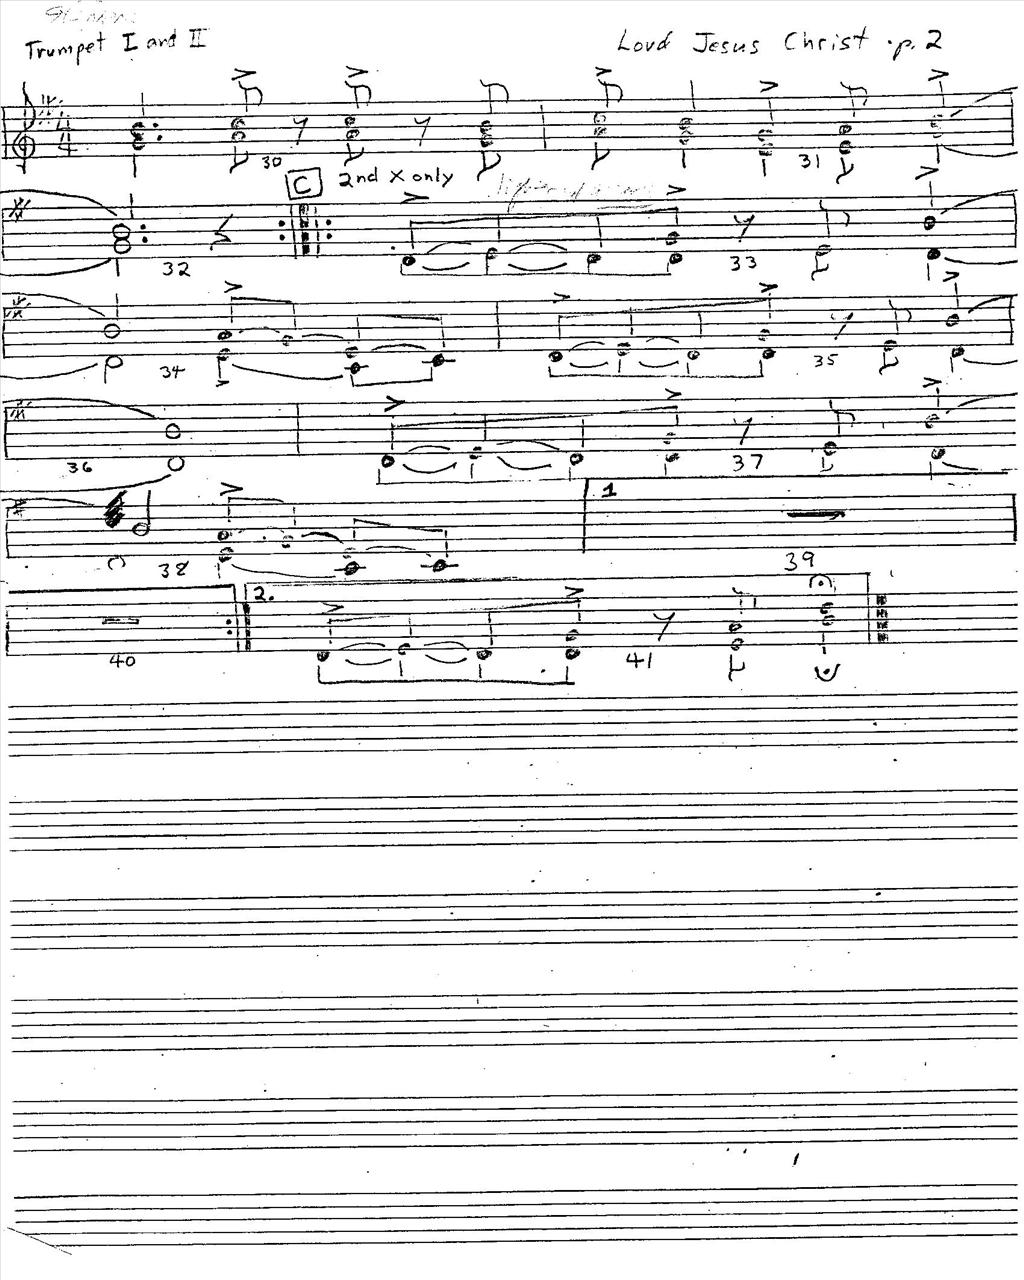 Trumpet I and II
Lord Jesus Christ p. 2
4
4
30
31
C 2nd X only
32
33
34
35
36
37
1
38
39
2.
40
41